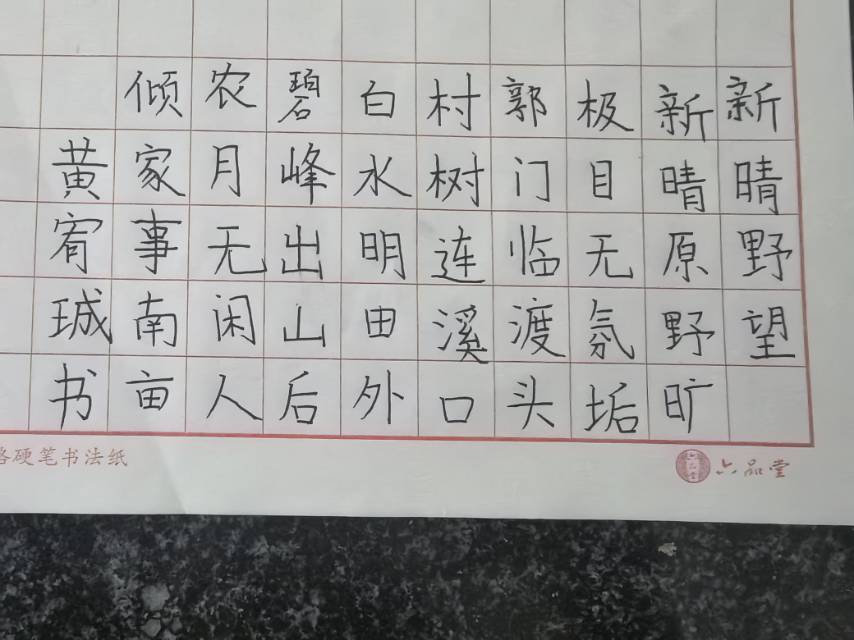 新晴野望
新晴原野旷
极目无氛垢
郭门临渡头
村树连溪口
白水明由外
碧峰出山后
农月无闲人
倾家事南亩
黄宥珹书
格硬笔书法纸
六品堂